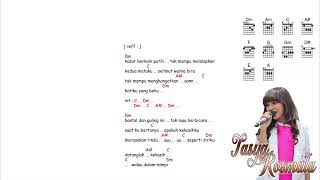 [ reff : ]
Dm
kasur berkain putih ... tak mampu melelapkan
C
kedua mataku ... selimut warna biru
A# C
tak mampu menghangatkan ... oann ...
Dm
hatiku yang beku ...
int : C .. Dm ...
C .. Dm ... Dm ...
Dm
bantal dan guling ini ... tak mau berbicara ...
C
saat ku bertanya ... apakah kekasihku
A# C Dm
merasakan rindu ... uu ... seperti diriku
A# C
datanglah ... kekasih ...
C Dm
... walau dalam mimpi
Dm Am C A#
F G Gm D#
E A
Tasya
Rosmala